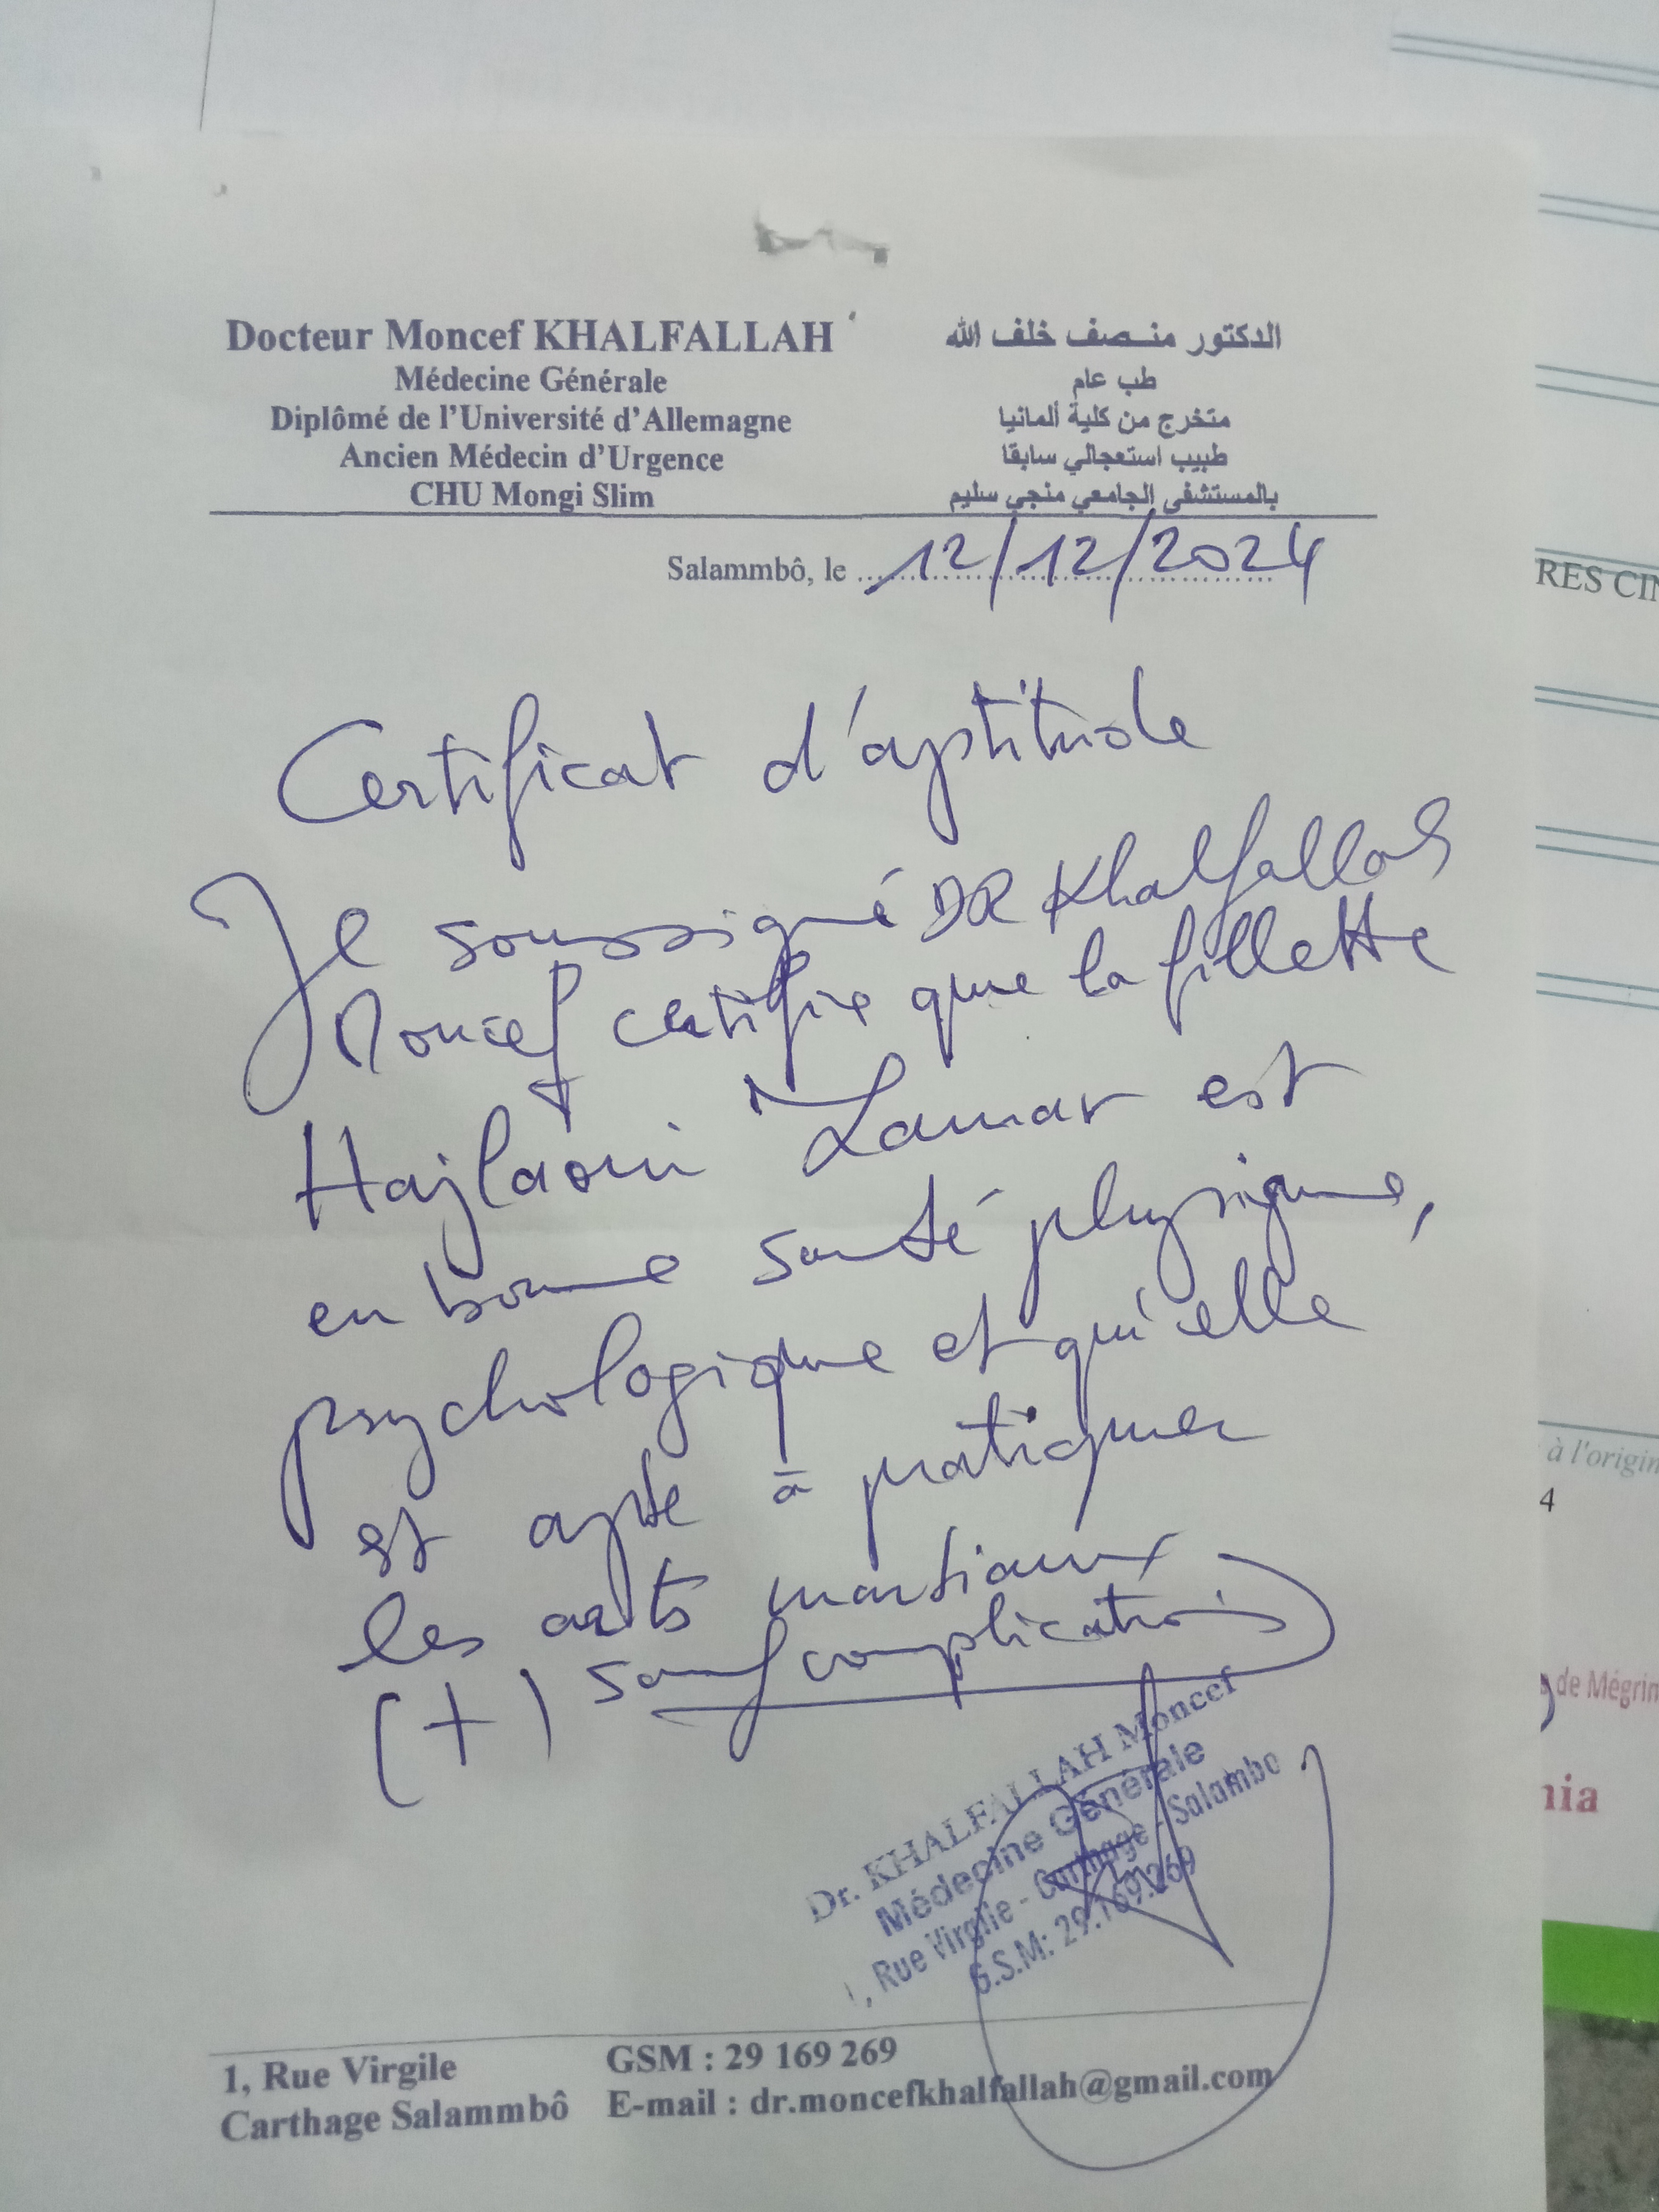 Docteur Moncef KHALFALLAH
Médecine Générale
Diplômé de l'Université d'Allemagne
Ancien Médecin d'Urgence
CHU Mongi Slim
الدكتور منصف خلف الله
طب عام
متخرج من كلية ألمانيا
طبيب استعجالي سابقا
بالمستشفى الجامعي منجي سليم
Salammbô, le 12/12/2024
Certificat d'aptitude
Je soussigné DR Khalfallah
Moncef certifie que la fillette
Hajlaoui Lamar est
en bonne santé physique,
psychologique et qu'elle
est apte à pratiquer
les arts martiaux
(+) sauf complications
Dr. KHALFALLAH Moncef
Médecine Générale
1, Rue Virgile - Carthage - Salambo
G.S.M: 29.169.269
1, Rue Virgile
Carthage Salammbô
GSM : 29 169 269
E-mail : dr.moncefkhalfallah@gmail.com
RES CIN
à l'origin
4
de Mégrin
nia